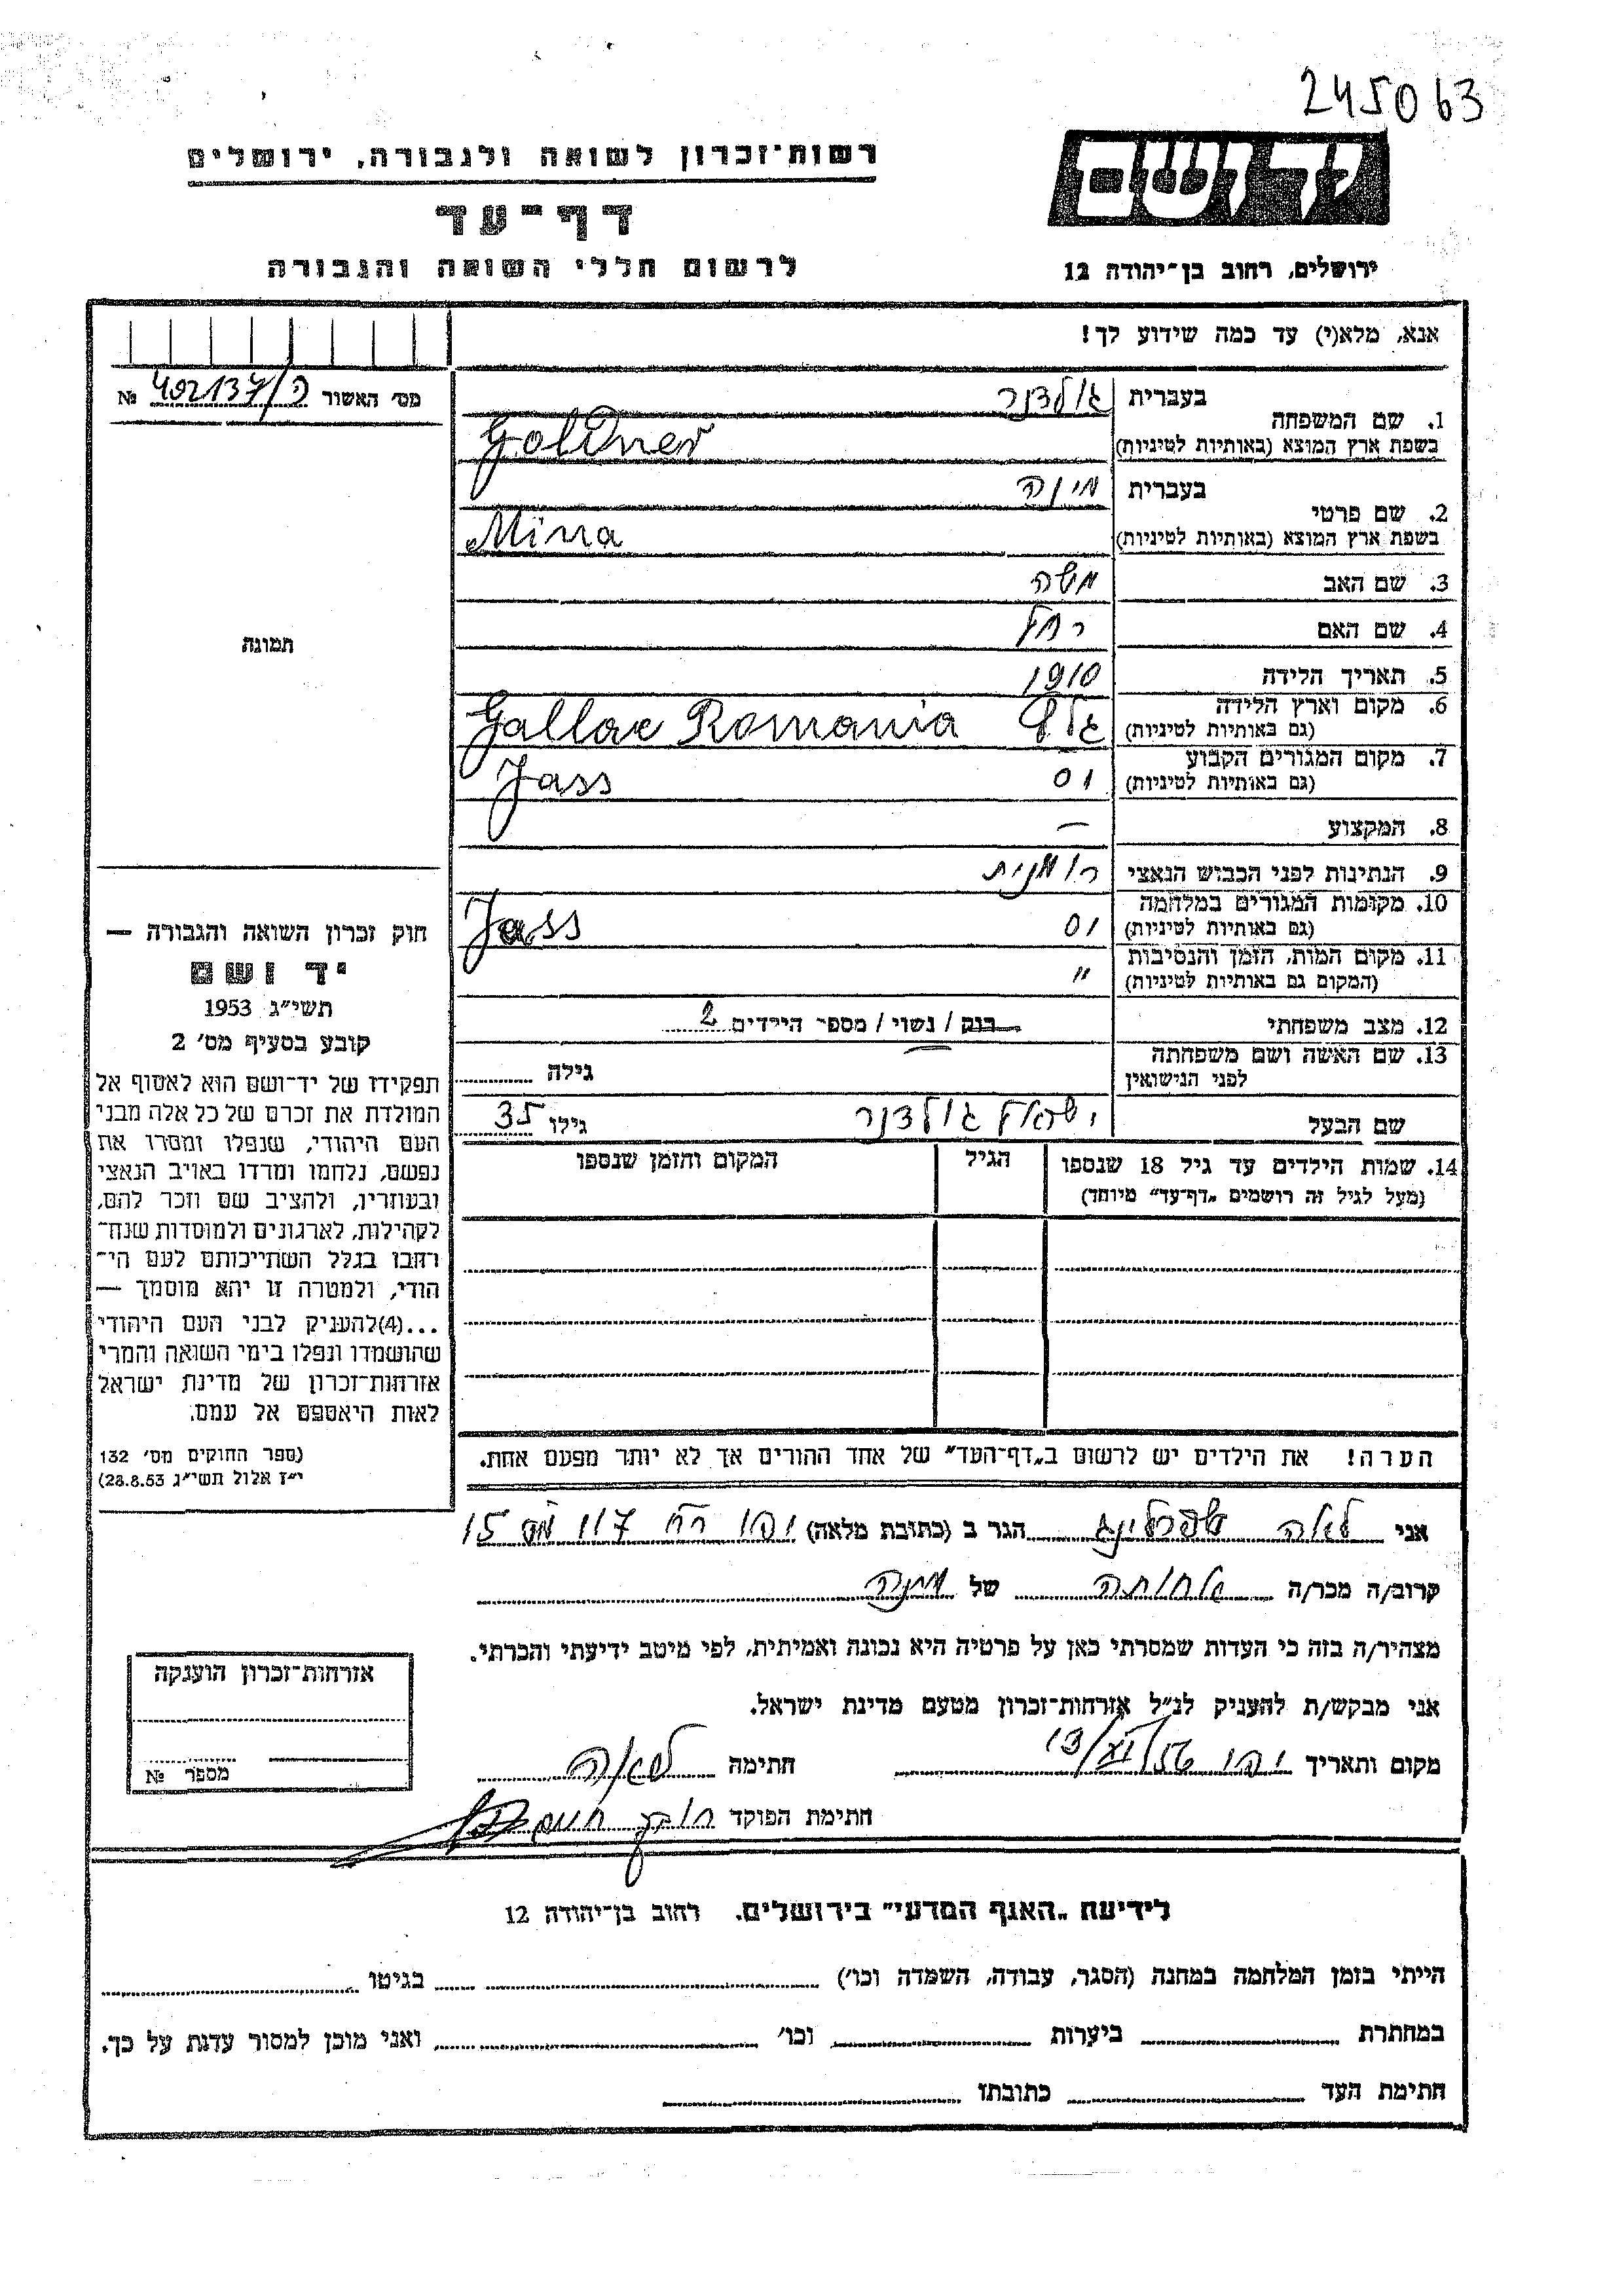 245063
יד ושם
ירושלים, רחוב בן־יהודה 12
רשות־זכרון לשואה ולגבורה, ירושלים
דף־עד
לרשום חללי השואה והגבורה
אנא, מלא(י) עד כמה שידוע לך!
מס׳ האשור 402137/ה №
1. שם המשפחה
בעברית גולדנר
בשפת ארץ המוצא (באותיות לטיניות) Goldner
2. שם פרטי
בעברית מינה
בשפת ארץ המוצא (באותיות לטיניות) Mina
3. שם האב משה
4. שם האם רחל
5. תאריך הלידה 1910
6. מקום וארץ הלידה
(גם באותיות לטיניות) Gallac Romania
7. מקום המגורים הקבוע
(גם באותיות לטיניות) Jass
8. המקצוע —
9. הנתינות לפני הכבוש הנאצי רומנית
10. מקומות המגורים במלחמה
(גם באותיות לטיניות) Jass
11. מקום המות, הזמן והנסיבות
(המקום גם באותיות לטיניות) "
12. מצב משפחתי רווק / נשוי / מספר הילדים 2
13. שם האשה ושם משפחתה
לפני הנישואין גילה
שם הבעל ישראל גולדנר גילו 35
14. שמות הילדים עד גיל 18 שנספו הגיל המקום והזמן שנספו
(מעל לגיל זה רושמים „דף־עד״ מיוחד)
הערה! את הילדים יש לרשום ב„דף־העד״ של אחד ההורים אך לא יותר מפעם אחת.
תמונה
חוק זכרון השואה והגבורה —
יד ושם
תשי״ג 1953
קובע בסעיף מס׳ 2
תפקידו של יד־ושם הוא לאסוף אל
המולדת את זכרם של כל אלה מבני
העם היהודי, שנפלו ומסרו את
נפשם, נלחמו ומרדו באויב הנאצי
ובעוזריו, ולהציב שם וזכר להם,
לקהילות, לארגונים ולמוסדות שנח־
רבו בגלל השתייכותם לעם הי־
הודי, ולמטרה זו יהא מוסמך —
...(4)להעניק לבני העם היהודי
שהושמדו ונפלו בימי השואה והמרי
אזרחות־זכרון של מדינת ישראל
לאות היאספם אל עמם.
(ספר החוקים מס׳ 132
י״ז אלול תשי״ג 28.8.53)
אני לאה הגר ב (כתובת מלאה) יפו רח 117 מס 15
קרוב/ה מכר/ה אחותה של מינה
מצהיר/ה בזה כי העדות שמסרתי כאן על פרטיה היא נכונה ואמיתית, לפי מיטב ידיעתי והכרתי.
אני מבקש/ת להעניק לנ״ל אזרחות־זכרון מטעם מדינת ישראל.
מקום ותאריך יפו חתימה לאה
חתימת הפוקד
אזרחות־זכרון הוענקה
מספר №
לידיעת „האגף המדעי״ בירושלים. רחוב בן־יהודה 12
הייתי בזמן המלחמה במחנה (הסגר, עבודה, השמדה וכו׳) בגיטו
במחתרת ביערות וכו׳ ואני מוכן למסור עדות על כך.
חתימת העד כתובתו